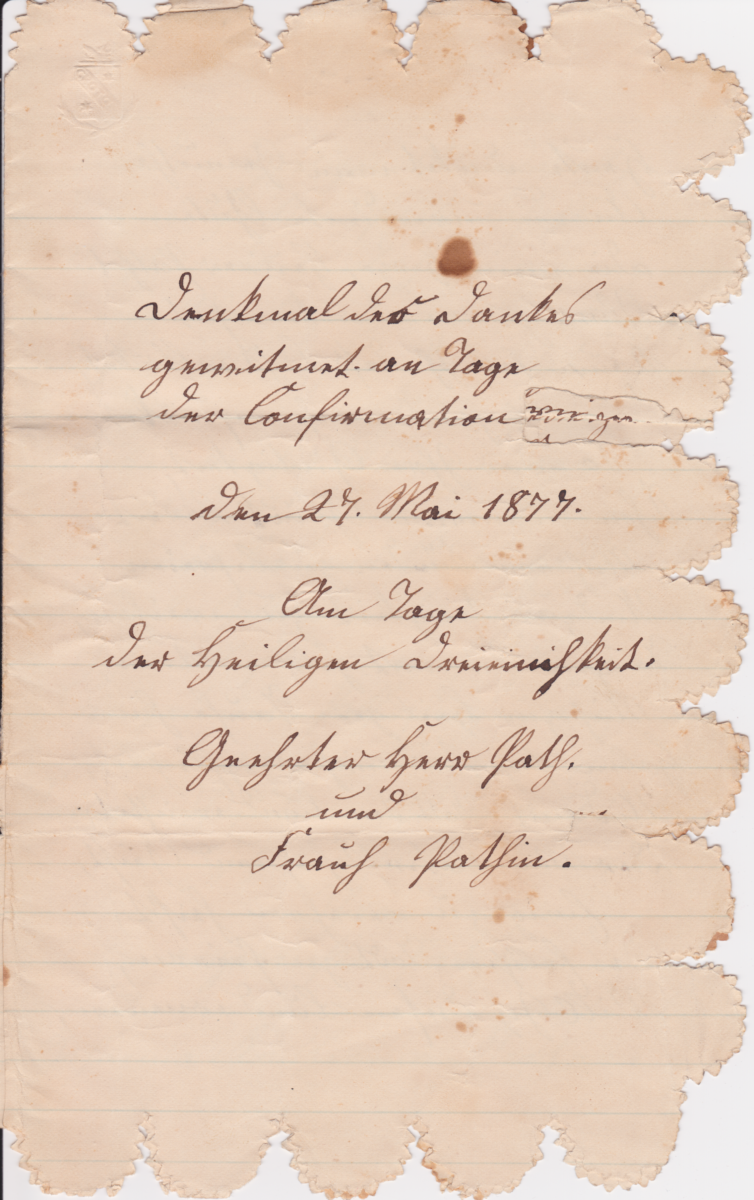 Denkmal des Dankes
geweitmet. an Tage
der Confirmation
den 27. Mai 1877.
Am Tage
der Heiligen Dreieinichkeit.
Geehrter Herr Path.
und
Frauh Pathin.